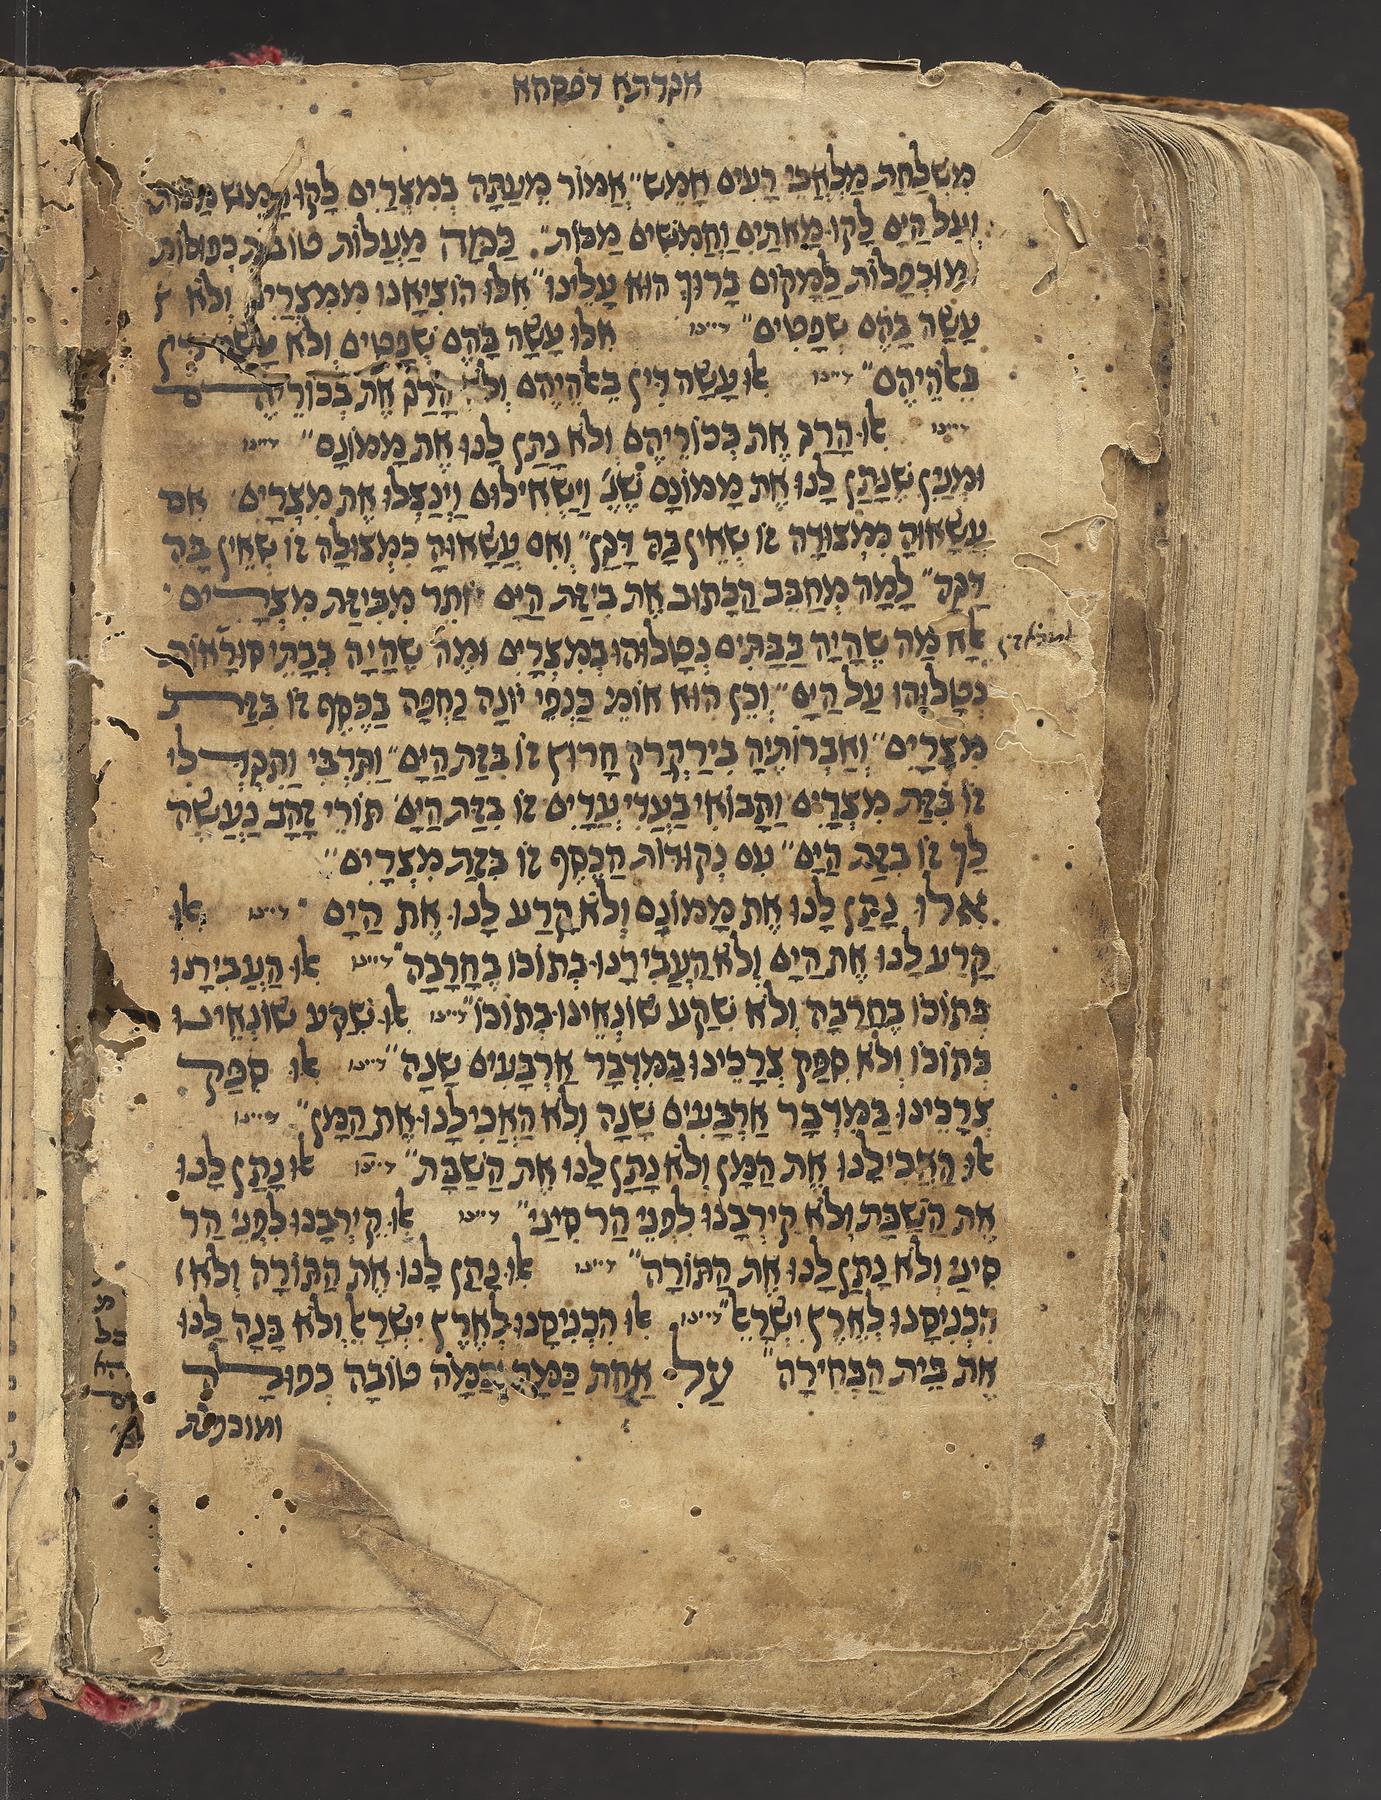 אגדתא דפסחא
מִשְׁלַחַת מַלְאֲכֵי רָעִים חָמֵשׁ״ אֱמוֹר מֵעַתָּה בְּמִצְרַיִם לָקוּ חָמֵשׁ מַכּוֹת
וְעַל הַיָּם לָקוּ מָאתַיִם וַחֲמִשִּׁים מַכּוֹת״ כַּמָּה מַעֲלוֹת טוֹבוֹת כְּפוּלוֹת
וּמוּכְפָלוֹת לַמָּקוֹם בָּרוּךְ הוּא עָלֵינוּ״ אִלּוּ הוֹצִיאָנוּ מִמִּצְרַיִם וְלֹא
עָשָׂה בָּהֶם שְׁפָטִים״ דיינו אִלּוּ עָשָׂה בָּהֶם שְׁפָטִים וְלֹא עָשָׂה דִין
בֵּאלֹהֵיהֶם״ דיינו אִוּ עָשָׂה דִין בֵּאלֹהֵיהֶם וְלֹא הָרַג אֶת בְּכוֹרֵיהֶם
דיינו אִוּ הָרַג אֶת בְּכוֹרֵיהֶם וְלֹא נָתַן לָנוּ אֶת מָמוֹנָם״ דיינו
וּמְנַיִן שֶׁנָּתַן לָנוּ אֶת מָמוֹנָם שֶׁנֶּ׳ וַיַּשְׁאִילוּם וַיְנַצְּלוּ אֶת מִצְרַיִם אם
עֲשָׂאוּהָ כִּמְצוּדָה זוֹ שֶׁאֵין בָּהּ דָּגָן״ וְאִם עֲשָׂאוּהָ כִּמְצוּלָה זוֹ שֶׁאֵין בָּהּ
דָּגָה״ לָמָּה מְחַבֵּב הַכָּתוּב אֶת בִּיזַּת הַיָּם יותֵר מִבִּיזַּת מִצְרַיִם
אֶלָּא מַה שֶּׁהָיָה בַּבָּתִּים נְטָלוּהוּ בְּמִצְרַיִם וּמַה שֶּׁהָיָה בְּבָתֵּי סוּרָאוֹת
נְטָלוּהוּ עַל הַיָּם״ וְכֵן הוּא אוֹמֵ׳ כַּנְפֵי יוֹנָה נֶחְפָּה בַכֶּסֶף זוֹ בִּזַּת
מִצְרַיִם״ וְאֶבְרוֹתֶיהָ בִּירַקְרַק חָרוּץ זוֹ בִּזַּת הַיָּם״ וַתִּרְבִּי וַתִּגְדְּלִי
זוֹ בִּזַּת מִצְרַיִם וַתָּבוֹאִי בַּעֲדִי עֲדָיִים זוֹ בִּזַּת הַיָּם תּוֹרֵי זָהָב נַעֲשֶׂה
לָּךְ זוֹ בִּזַּת הַיָּם״ עִם נְקוּדּוֹת הַכָּסֶף זוֹ בִּזַּת מִצְרַיִם״
אִלּוּ נָתַן לָנוּ אֶת מָמוֹנָם וְלֹא קָרַע לָנוּ אֶת הַיָּם דיינו אִוּ
קָרַע לָנוּ אֶת הַיָּם וְלֹא הֶעֱבִירָנוּ בְּתוֹכוֹ בֶּחָרָבָה״ דיינו אִוּ הֶעֱבִירָנוּ
בְּתוֹכוֹ בֶּחָרָבָה וְלֹא שִׁקַּע שׂוֹנְאֵינוּ בְּתוֹכוֹ״ דיינו אִוּ שִׁקַּע שׂוֹנְאֵינוּ
בְּתוֹכוֹ וְלֹא סִפֵּק צְרָכֵינוּ בַּמִּדְבָּר אַרְבָּעִים שָׁנָה״ דיינו אִוּ סִפֵּק
צְרָכֵינוּ בַּמִּדְבָּר אַרְבָּעִים שָׁנָה וְלֹא הֶאֱכִילָנוּ אֶת הַמָּן״ דיינו
אִוּ הֶאֱכִילָנוּ אֶת הַמָּן וְלֹא נָתַן לָנוּ אֶת הַשַּׁבָּת״ דיינו אִוּ נָתַן לָנוּ
אֶת הַשַּׁבָּת וְלֹא קֵירְבָנוּ לִפְנֵי הַר סִינַי״ דיינו אִוּ קֵירְבָנוּ לִפְנֵי הַר
סִינַי וְלֹא נָתַן לָנוּ אֶת הַתּוֹרָה״ דיינו אִוּ נָתַן לָנוּ אֶת הַתּוֹרָה וְלֹא
הִכְנִיסָנוּ לְאֶרֶץ יִשְׂרָאֵל״ דיינו אִוּ הִכְנִיסָנוּ לְאֶרֶץ יִשְׂרָאֵל וְלֹא בָּנָה לָנוּ
אֶת בֵּית הַבְּחִירָה״ עַל אַחַת כַּמָּה וְכַמָּה טוֹבָה כְּפוּלָה
ומוכפלת